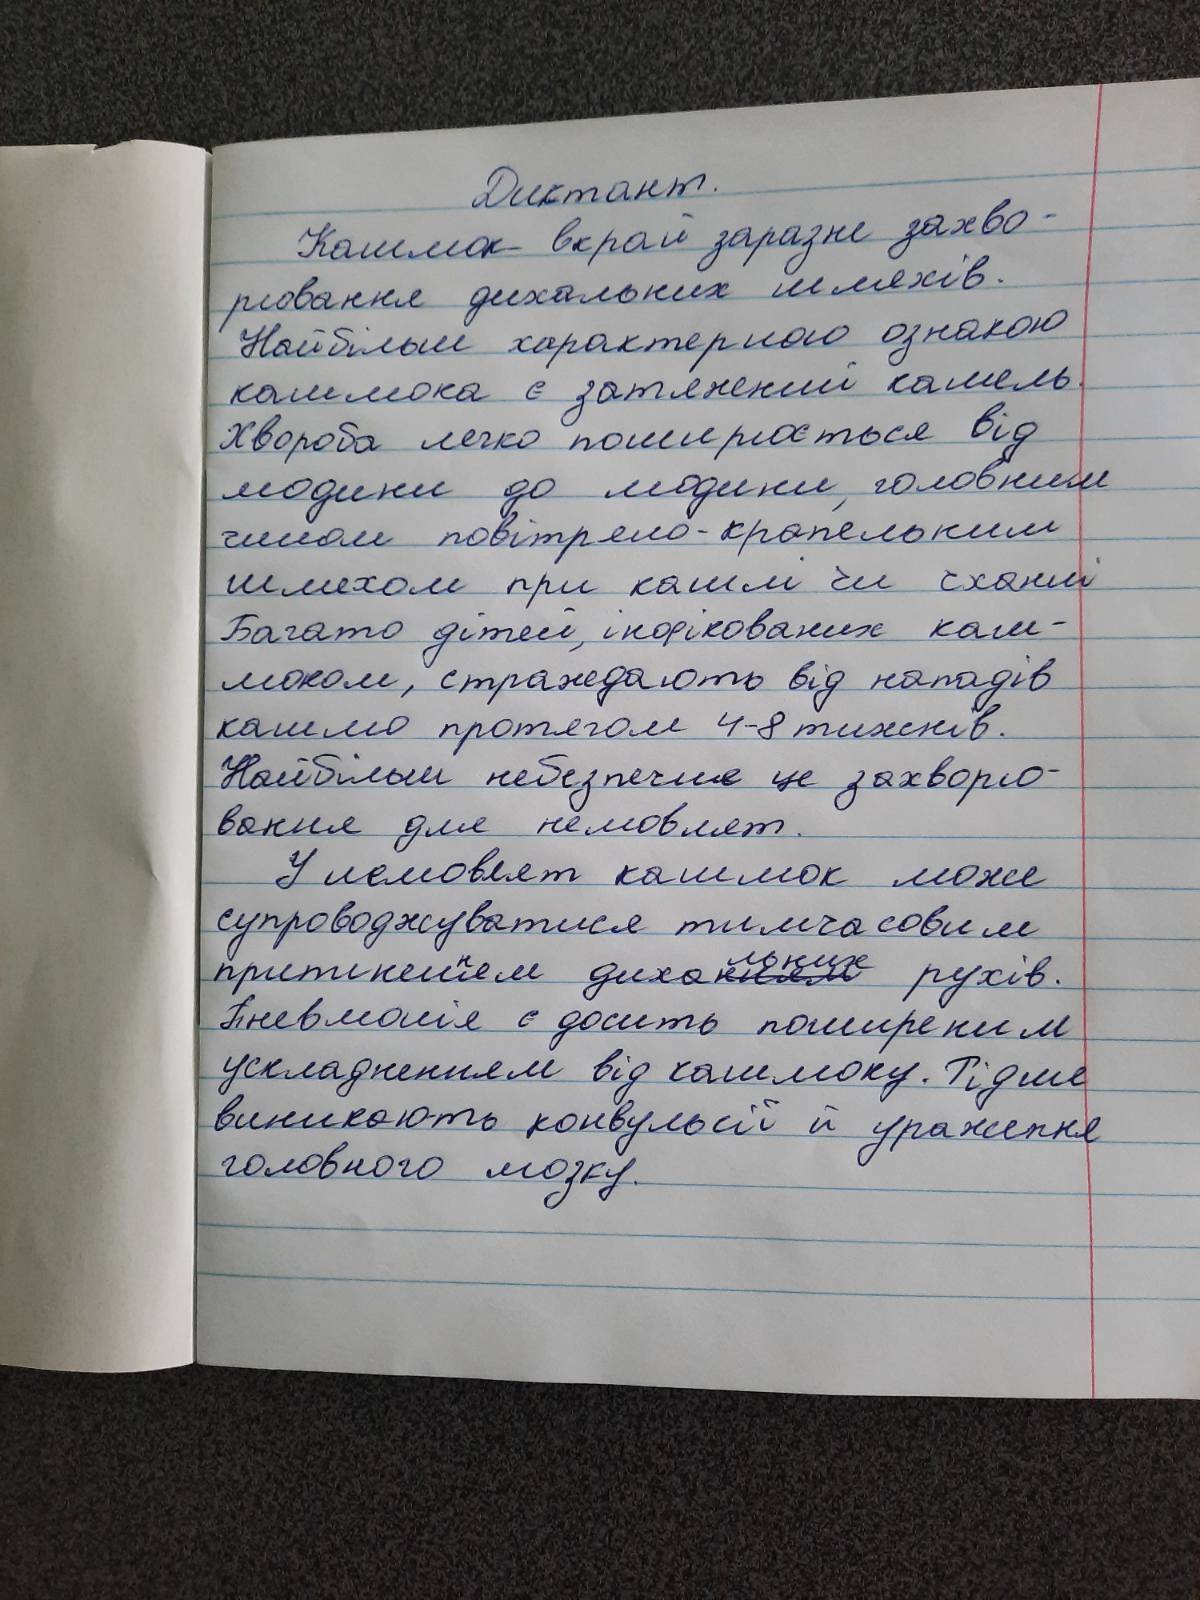 Диктант.
Кашлюк - вкрай заразне захво-
рювання дихальних шляхів.
Найбільш характерною ознакою
кашлюка є затяжний кашель.
Хвороба легко поширюється від
людини до людини, головним
чином повітряно-крапельним
шляхом при кашлі чи чханні
Багато дітей, інфікованих каш-
люком, страждають від нападів
кашлю протягом 4-8 тижнів.
Найбільш небезпечне це захворю-
вання для немовлят.
У немовлят кашлюк може
супроводжуватися тимчасовим
припиненням дихальних рухів.
Пневмонія є досить поширеним
ускладненням від кашлюку. Рідше
виникають конвульсії й ураження
головного мозку.